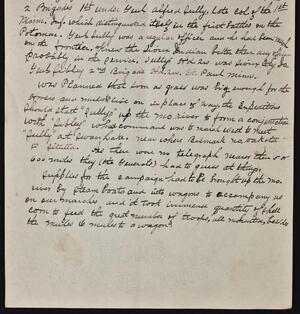 2 Brigades 1st under Genl Alfred Sully, late Col of the 1st
Minn, Inf, which distinguished itself in the first battles on the
Potomac. Genl Sully was a regular officer and he had been much
on the frontier. Knew the Sioux Indian better than any officer
probably in the service. Sully's Hd Qrs was Sioux City Ia.
Genl Sibley 2nd Brigade St. Paul Minn.
was Planned that soon as grass was big enough for the
horses and mules to live on in place of hay, the Expedition
should start Sully's up the Mo. river to form a conjunction
with "Sibley" who's command was to march west to meet
"Sully" at Swan Lake, near where Bismark N. Dakota
is situated. As there were no telegraph nearer than 5 or
600 miles they (the Generals) had to guess at things.
Supplies for the campaign had to be brought up the Mo.
river by steam boats and into wagons to accompany us
on our marches and it took immense quantity of shell
corn to feed the great number of troops, all mounted, besides
the mules 6 mules to a wagon.